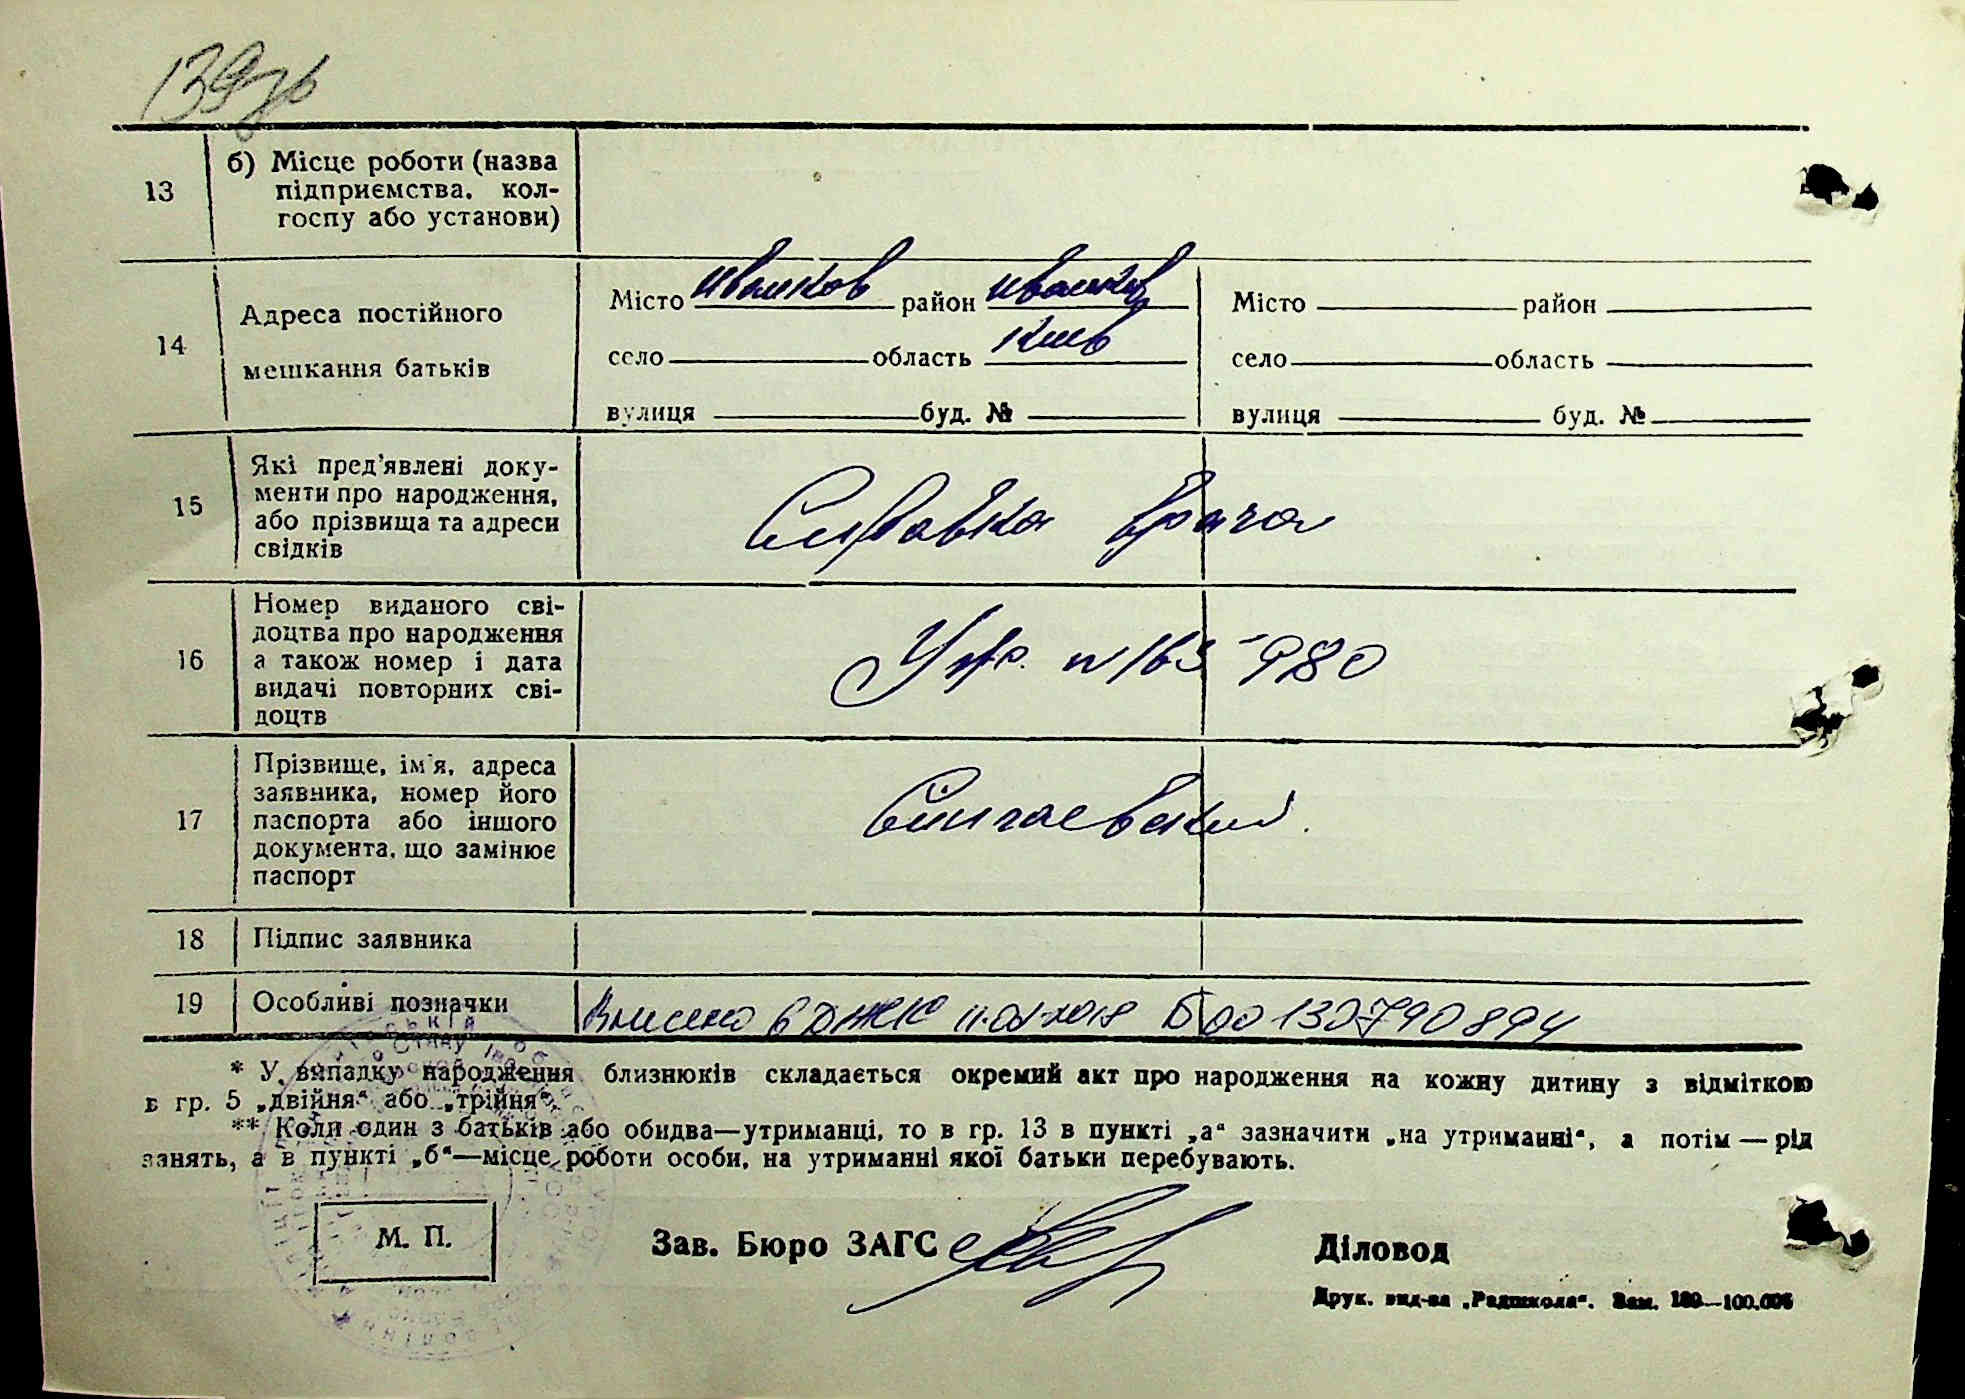 139зв
13
б) Місце роботи (назва
підприємства, кол-
госпу або установи)
14
Адреса постійного
мешкання батьків
Місто Иванков район Иванков
село область Киев
вулиця буд. №
Місто район
село область
вулиця буд. №
15
Які пред'явлені доку-
менти про народження,
або прізвища та адреси
свідків
Справка врача
16
Номер виданого сві-
доцтва про народження
а також номер і дата
видачі повторних сві-
доцтв
980
17
Прізвище, ім'я, адреса
заявника, номер його
паспорта або іншого
документа, що замінює
паспорт
Сингаевский
18
Підпис заявника
19
Особливі позначки
Внесено в ДРАЦС 2018 00130790894
* У випадку народження близнюків складається окремий акт про народження на кожну дитину з відміткою
в гр. 5 „двійня“ або „трійня“.
** Коли один з батьків або обидва—утриманці, то в гр. 13 в пункті „а“ зазначити „на утриманні“, а потім — рід
занять, а в пункті „б“—місце роботи особи, на утриманні якої батьки перебувають.
М. П.
Зав. Бюро ЗАГС
Діловод
Друк. вид-ва „Радшкола“. Зам.